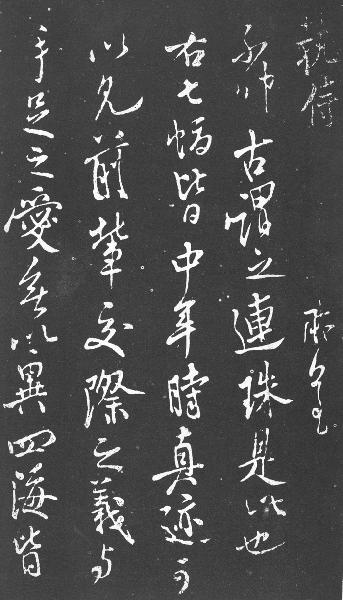 執侍
永師 古謂之連珠是此也
右七幅皆中年時真迹可
以見前輩交際之義与
手足之愛無以異四海皆